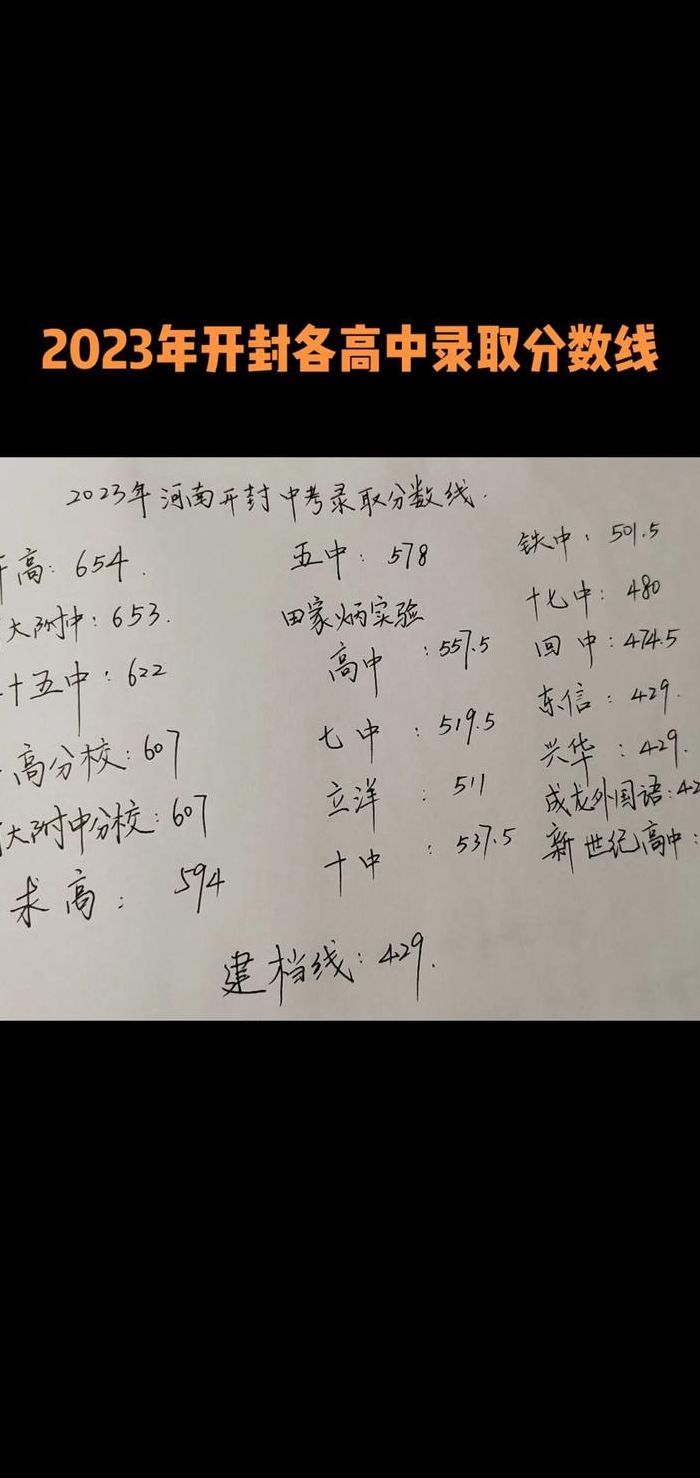 2023年开封各高中录取分数线
2023年河南开封中考录取分数线.
高: 654.
大附中: 653.
十五中: 622
高分校: 607
大附中分校: 607
求高: 594
五中: 578
田家炳实验
高中: 557.5
七中: 519.5
立洋: 511
十中: 537.5
铁中: 501.5
十七中: 480
回中: 474.5
东信: 429.
兴华: 429.
成龙外国语: 42
新世纪高中:
建档线: 429.